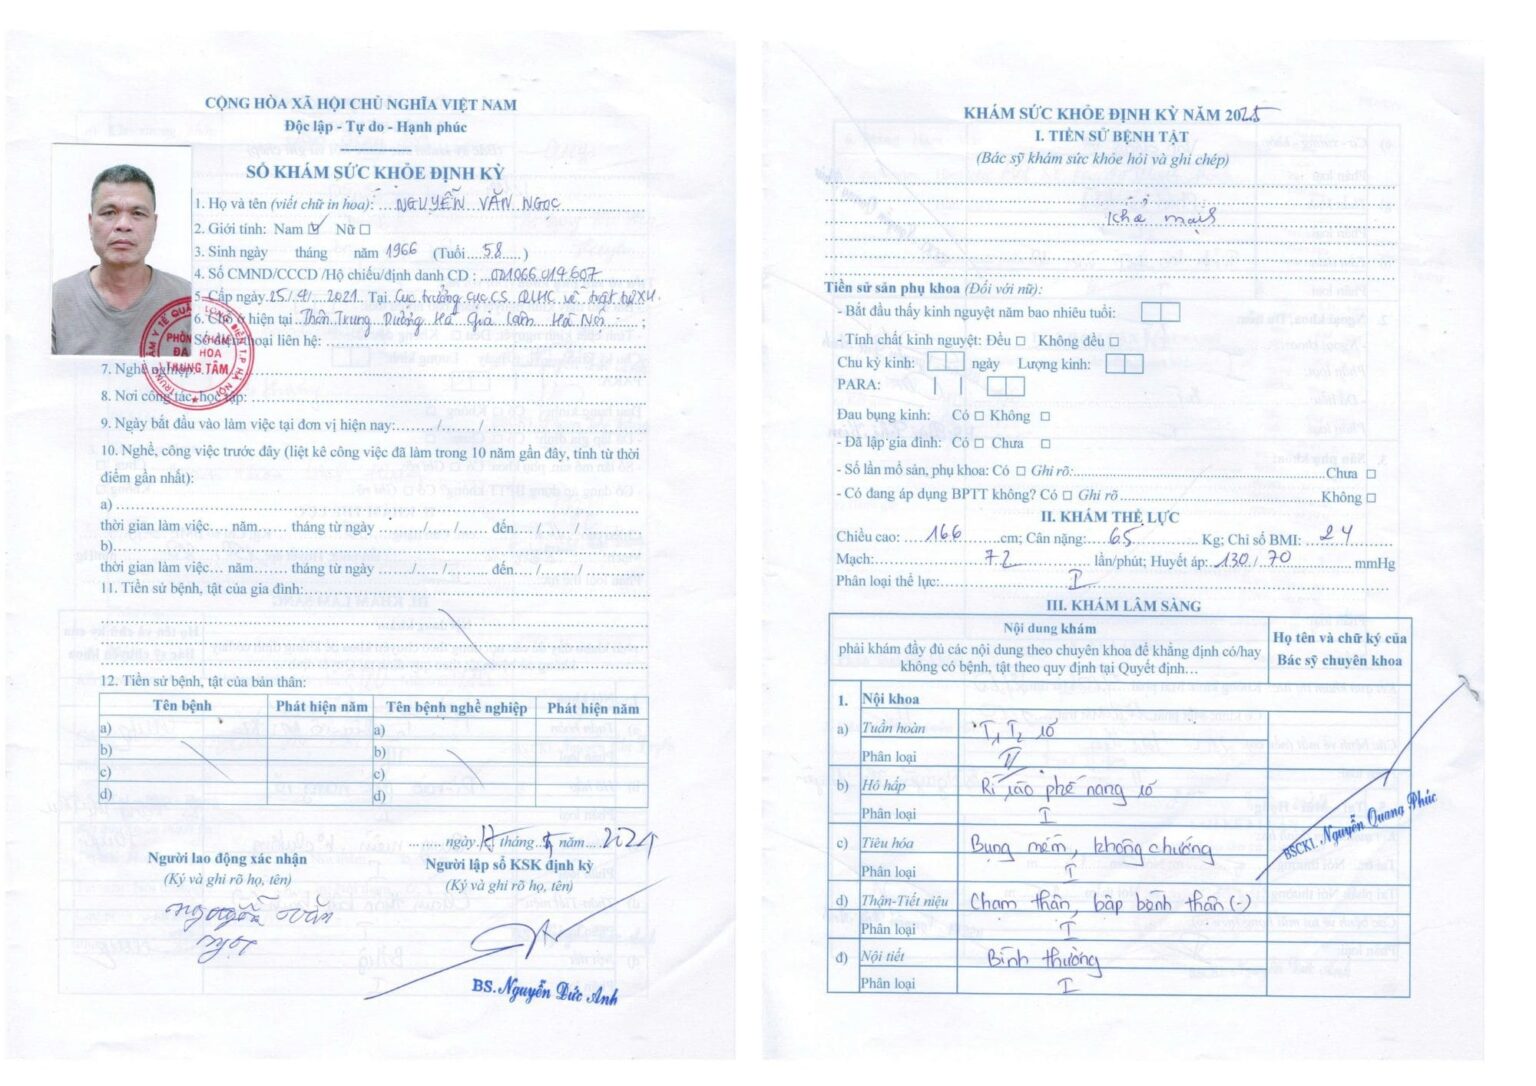 CỘNG HÒA XÃ HỘI CHỦ NGHĨA VIỆT NAM
Độc lập - Tự do - Hạnh phúc
SỔ KHÁM SỨC KHỎE ĐỊNH KỲ
1. Họ và tên (viết chữ in hoa): NGUYỄN VĂN NGỌC
2. Giới tính: Nam ☑ Nữ ☐
3. Sinh ngày tháng năm 1966 (Tuổi....58.....)
4. Số CMND/CCCD /Hộ chiếu/định danh CD : 001066019607
5. Cấp ngày 25/4/2021 Tại Cục trưởng cục CS QLHC về trật tự XH.
6. Chỗ ở hiện tại Thôn Trung Dương Hà Gia Lâm Hà Nội ;
Số điện thoại liên hệ:
PHÒNG KHÁM
ĐA KHOA
TRUNG TÂM
7. Nghề nghiệp:
8. Nơi công tác, học tập:
9. Ngày bắt đầu vào làm việc tại đơn vị hiện nay:......../......../
10. Nghề, công việc trước đây (liệt kê công việc đã làm trong 10 năm gần đây, tính từ thời
điểm gần nhất):
a)
thời gian làm việc.... năm...... tháng từ ngày ......../....../...... đến..../....../....
b)
thời gian làm việc.... năm...... tháng từ ngày ......../....../...... đến..../....../....
11. Tiền sử bệnh, tật của gia đình:
12. Tiền sử bệnh, tật của bản thân:
Tên bệnh Phát hiện năm Tên bệnh nghề nghiệp Phát hiện năm
a) a)
b) b)
c) c)
d) d)
ngày 17 tháng năm
Người lao động xác nhận Người lập sổ KSK định kỳ
(Ký và ghi rõ họ, tên) (Ký và ghi rõ họ, tên)
Nguyễn Văn
Ngọc
BS. Nguyễn Đức Anh
KHÁM SỨC KHỎE ĐỊNH KỲ NĂM 2025
I. TIỀN SỬ BỆNH TẬT
(Bác sỹ khám sức khỏe hỏi và ghi chép)
Khỏe mạnh
Tiền sử sản phụ khoa (Đối với nữ):
- Bắt đầu thấy kinh nguyệt năm bao nhiêu tuổi:
- Tính chất kinh nguyệt: Đều ☐ Không đều ☐
Chu kỳ kinh: ngày Lượng kinh:
PARA:
Đau bụng kinh: Có ☐ Không ☐
- Đã lập gia đình: Có ☐ Chưa ☐
- Số lần mổ sản, phụ khoa: Có ☐ Ghi rõ: Chưa ☐
- Có đang áp dụng BPTT không? Có ☐ Ghi rõ Không ☐
II. KHÁM THỂ LỰC
Chiều cao: 166 cm; Cân nặng: 65 Kg; Chỉ số BMI: 24
Mạch: 72 lần/phút; Huyết áp: 130/70 mmHg
Phân loại thể lực: I
III. KHÁM LÂM SÀNG
Nội dung khám
phải khám đầy đủ các nội dung theo chuyên khoa để khẳng định có/hay
không có bệnh, tật theo quy định tại Quyết định…
Họ tên và chữ ký của
Bác sỹ chuyên khoa
1. Nội khoa
a) Tuần hoàn T1, T2 rõ
Phân loại
b) Hô hấp Rì rào phế nang rõ
Phân loại I
c) Tiêu hóa Bụng mềm, không chướng
Phân loại I
d) Thận-Tiết niệu Chạm thận, bập bềnh thận (-)
Phân loại I
đ) Nội tiết Bình thường
Phân loại I
BSCKI. Nguyễn Quang Phúc